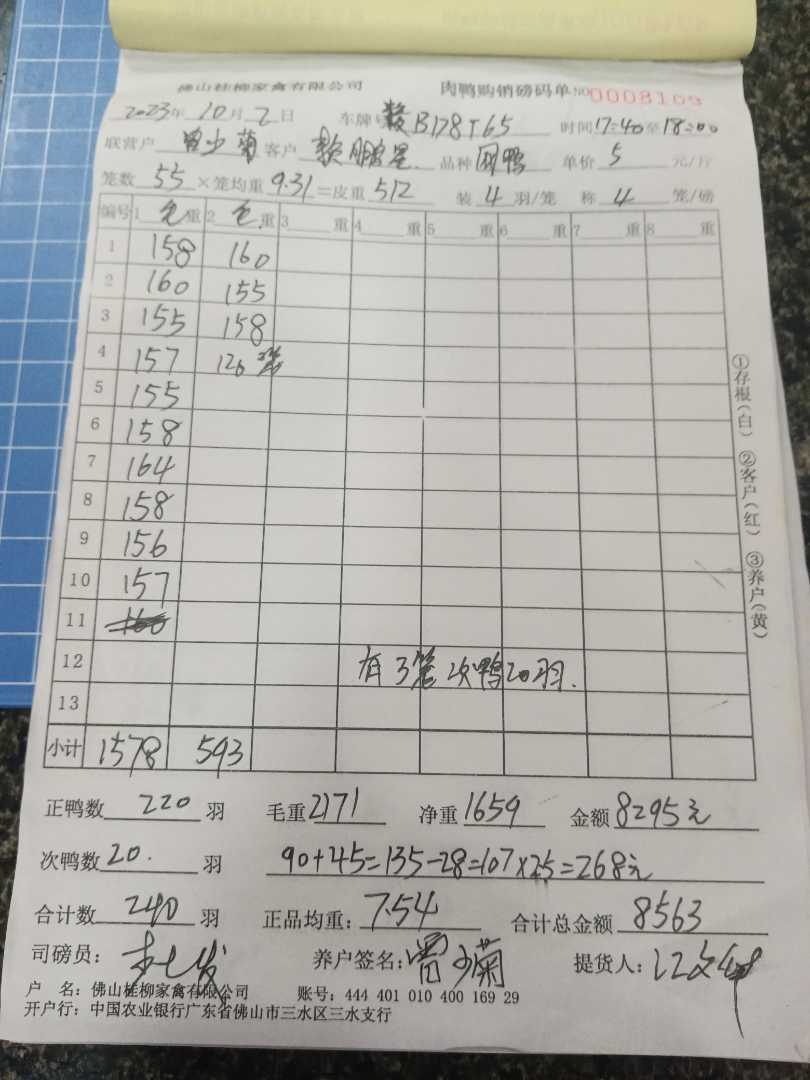 佛山桂柳家禽有限公司 肉鸭购销磅码单 NO 0008109
2023年10月2日 车牌号 B178T65 时间17:40至18:00
联营户 曾少菊 客户 鹏星 品种 网鸭 单价 5 元/斤
笼数 55 ×笼均重 9.31 =皮重 512 装 4 羽/笼 称 4 笼/磅
编号 1 毛重 2 毛重 3 重 4 重 5 重 6 重 7 重 8 重
1 158 160
2 160 155
3 155 158
4 157 120 3笼
5 155
6 158
7 164
8 158
9 156
10 157
11
12 有3笼次鸭20羽.
13
小计 1578 593
正鸭数 220 羽 毛重 2171 净重 1659 金额 8295元
次鸭数 20. 羽 90+45=135-28=107×25=268元
合计数 240 羽 正品均重: 7.54 合计总金额 8563
司磅员: 养户签名: 曾少菊 提货人:
户 名: 佛山桂柳家禽有限公司 账号: 444 401 010 400 169 29
开户行: 中国农业银行广东省佛山市三水区三水支行
①存根(白) ②客户(红) ③养户(黄)